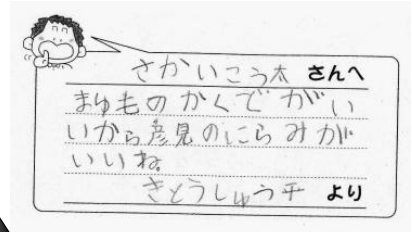 さかいこう太 さんへ
まゆものかくでがい
いから彦見のにらみが
いいね。
きとうしゅう平 より